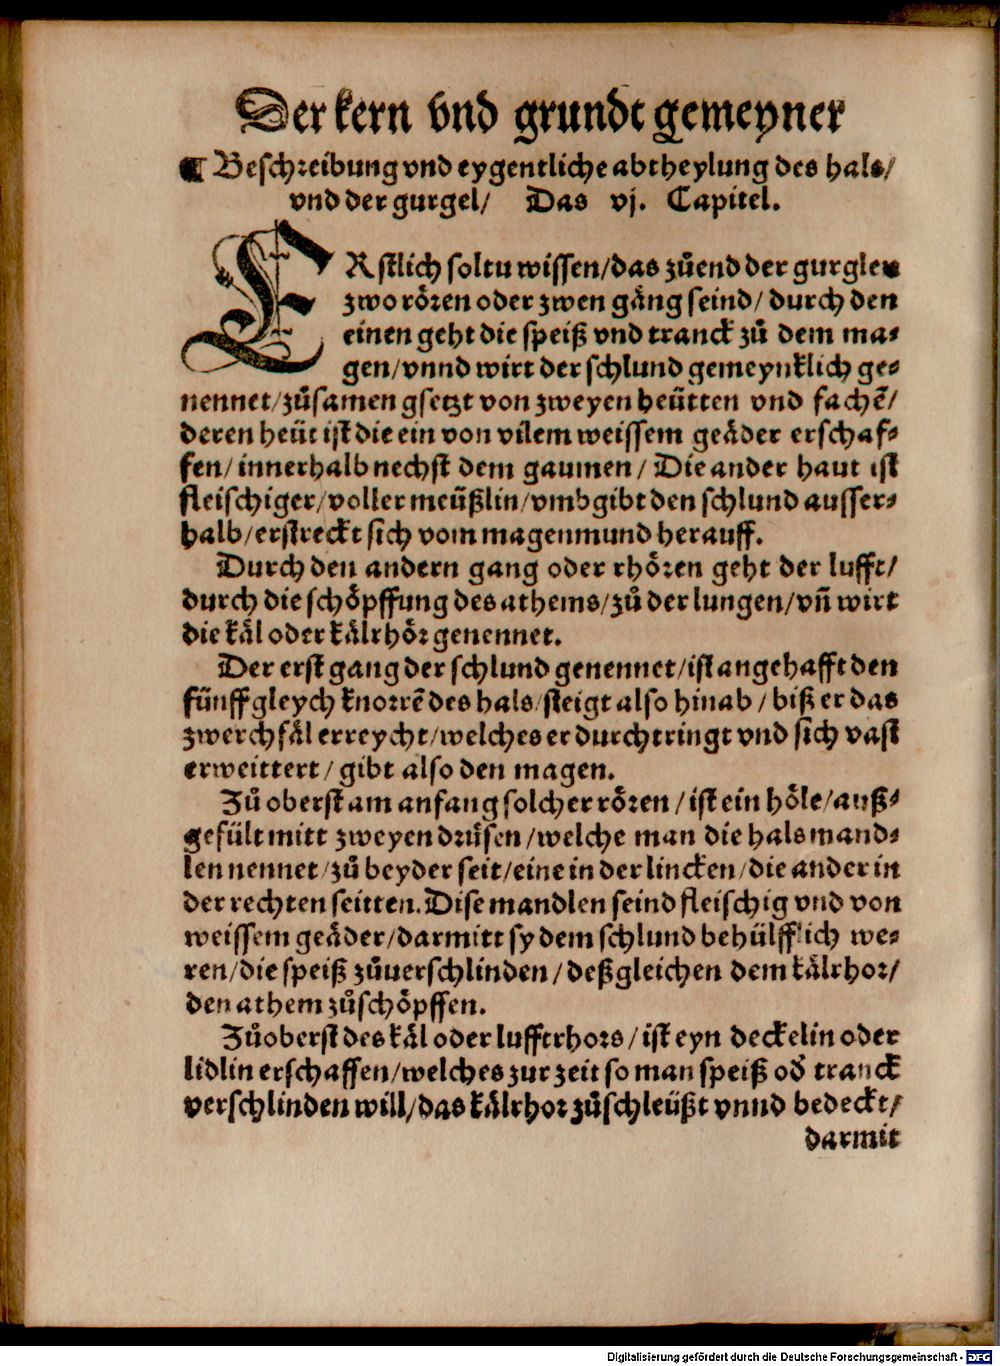 Der kern vnd grundt gemeyner
¶ Beschreibung vnd eygentliche abtheylung des hals/
vnd der gurgel/ Das vj. Capitel.
ERstlich soltu wissen/das zůend der gurglen
zwo rören oder zwen gäng seind/ durch den
einen geht die speiß vnd tranck zů dem ma⸗
gen/vnnd wirt der schlund gemeynklich ge⸗
nennet/zůsamen gsetzt von zweyen heütten vnd fachē/
deren heüt ist die ein von vilem weissem geäder erschaf⸗
fen/innerhalb nechst dem gaumen/ Die ander haut ist
fleischiger/voller meüßlin/vmbgibt den schlund ausser⸗
halb/erstreckt sich vom magenmund herauff.
Durch den andern gang oder rhören geht der lufft/
durch die schöpffung des athems/zů der lungen/vñ wirt
die käl oder kälrhör genennet.
Der erst gang der schlund genennet/ist angehafft den
fünff gleych knorrē des hals/steigt also hinab/ biß er das
zwerchfäl erreycht/welches er durchtringt vnd sich vast
erweittert/ gibt also den magen.
Zů oberst am anfang solcher rören/ist ein höle/auß⸗
gefült mitt zweyen drüsen/welche man die halsmand⸗
len nennet/zů beyder seit/eine in der lincken/die ander in
der rechten seitten. Dise mandlen seind fleischig vnd von
weissem geäder/darmitt sy dem schlund behülfflich we⸗
ren/die speiß zůuerschlinden/deßgleichen dem kälrhor/
den athem zůschöpffen.
Zůoberst des käl oder lufftrhors/ist eyn deckelin oder
lidlin erschaffen/welches zur zeit so man speiß od̕ tranck
verschlinden will/das kälrhor zůschleüßt vnnd bedeckt/
darmit
Digitalisierung gefördert durch die Deutsche Forschungsgemeinschaft - DFG